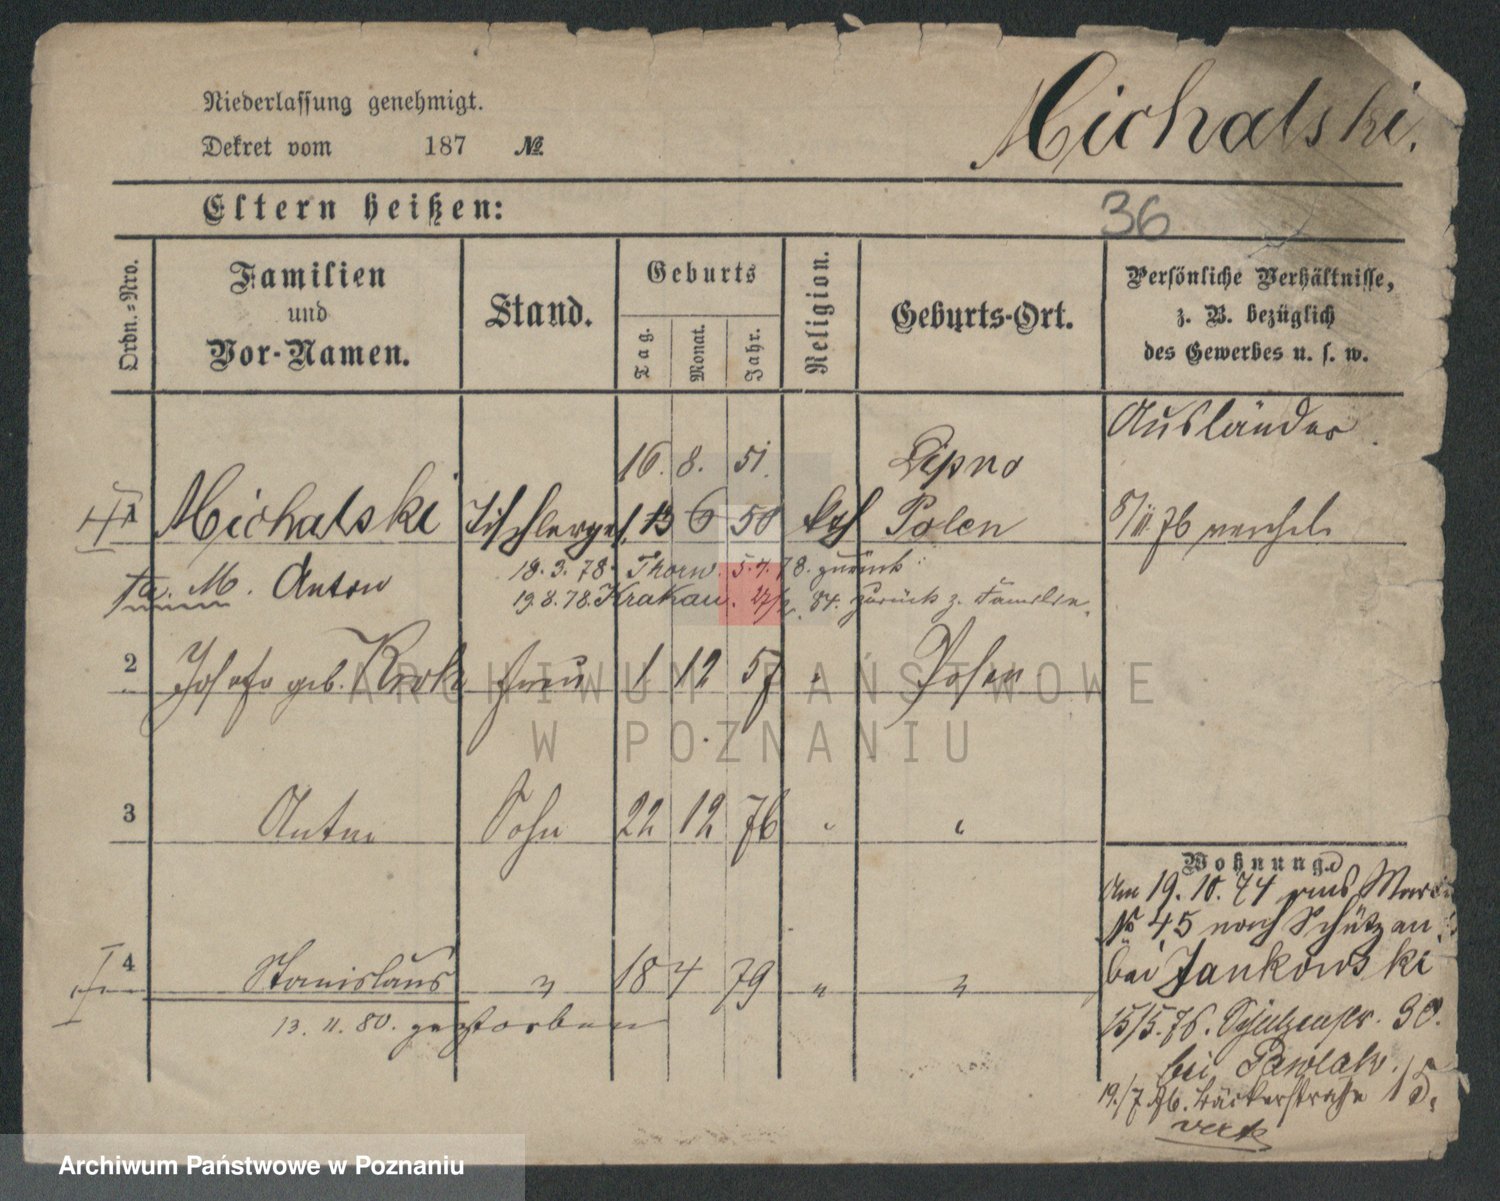 Niederlassung genehmigt.
Dekret vom 187 №
Michalski.
Eltern heißen:
36
Ordn.=Nro.
Familien
und
Vor-Namen.
Stand.
Geburts
Tag.
Monat.
Jahr.
Religion.
Geburts-Ort.
Persönliche Verhältnisse,
z. B. bezüglich
des Gewerbes u. s. w.
Ausländer
16. 8. 51. Lipno
1 Michalski Tischlerges. 13 6 50 kth Polen
8/11 76 verehel.
M. Anton 18.3.78. Thorn. 5.4.78. zurück
19.8.78. Krakau. 84. zurück z. Familie.
2 Josefa geb. Krok Frau 1 12 57 " Posen
3 Anton Sohn 22 12 76 " "
4 Stanislaus " 18 4 79 " "
13. 11. 80. gestorben
Wohnung.
Am 19. 10. 74 aus
№ 45 nach Schützen
bei Jankowski
15/5. 76. Schützenstr. 30.
bei Pawlak.
19./7 76. Bäckerstraße 15.
vert
ARCHIWUM PAŃSTWOWE
W POZNANIU
Archiwum Państwowe w Poznaniu